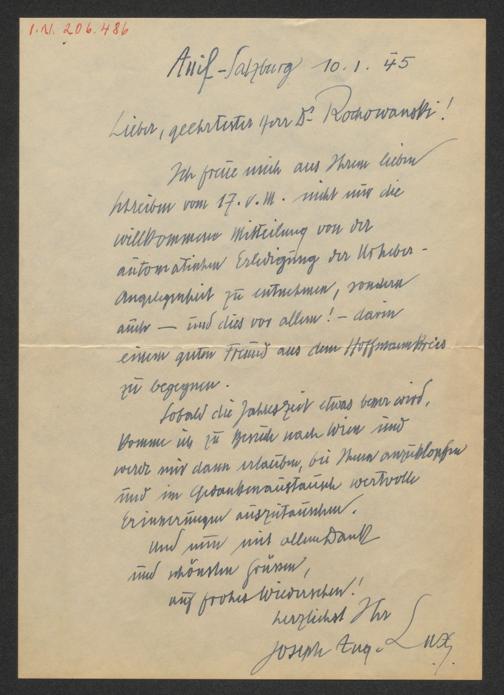 I.N. 206.486
Anif-Salzburg 10.1.45
Lieber, geehrtester Herr Dr Rochowanski!
Ich freue mich aus Ihrem lieben
Schreiben vom 17. v. M. nicht nur die
willkommene Mitteilung von der
automatischen Erledigung der Urheber-
angelegenheit zu entnehmen, sondern
auch — und dies vor allem! — darin
einem guten Freund aus dem Hoffmannkreis
zu begegnen.
Sobald die Jahreszeit etwas besser wird,
komme ich zu Besuch nach Wien und
werde mir dann erlauben, bei Ihnen anzuklopfen
und im Gedankenaustausch wertvolle
Erinnerungen auszutauschen.
Und nun mit allem Dank
und schönsten Grüssen,
auf frohes Wiedersehen!
herzlichst Ihr
Joseph Aug. Lux